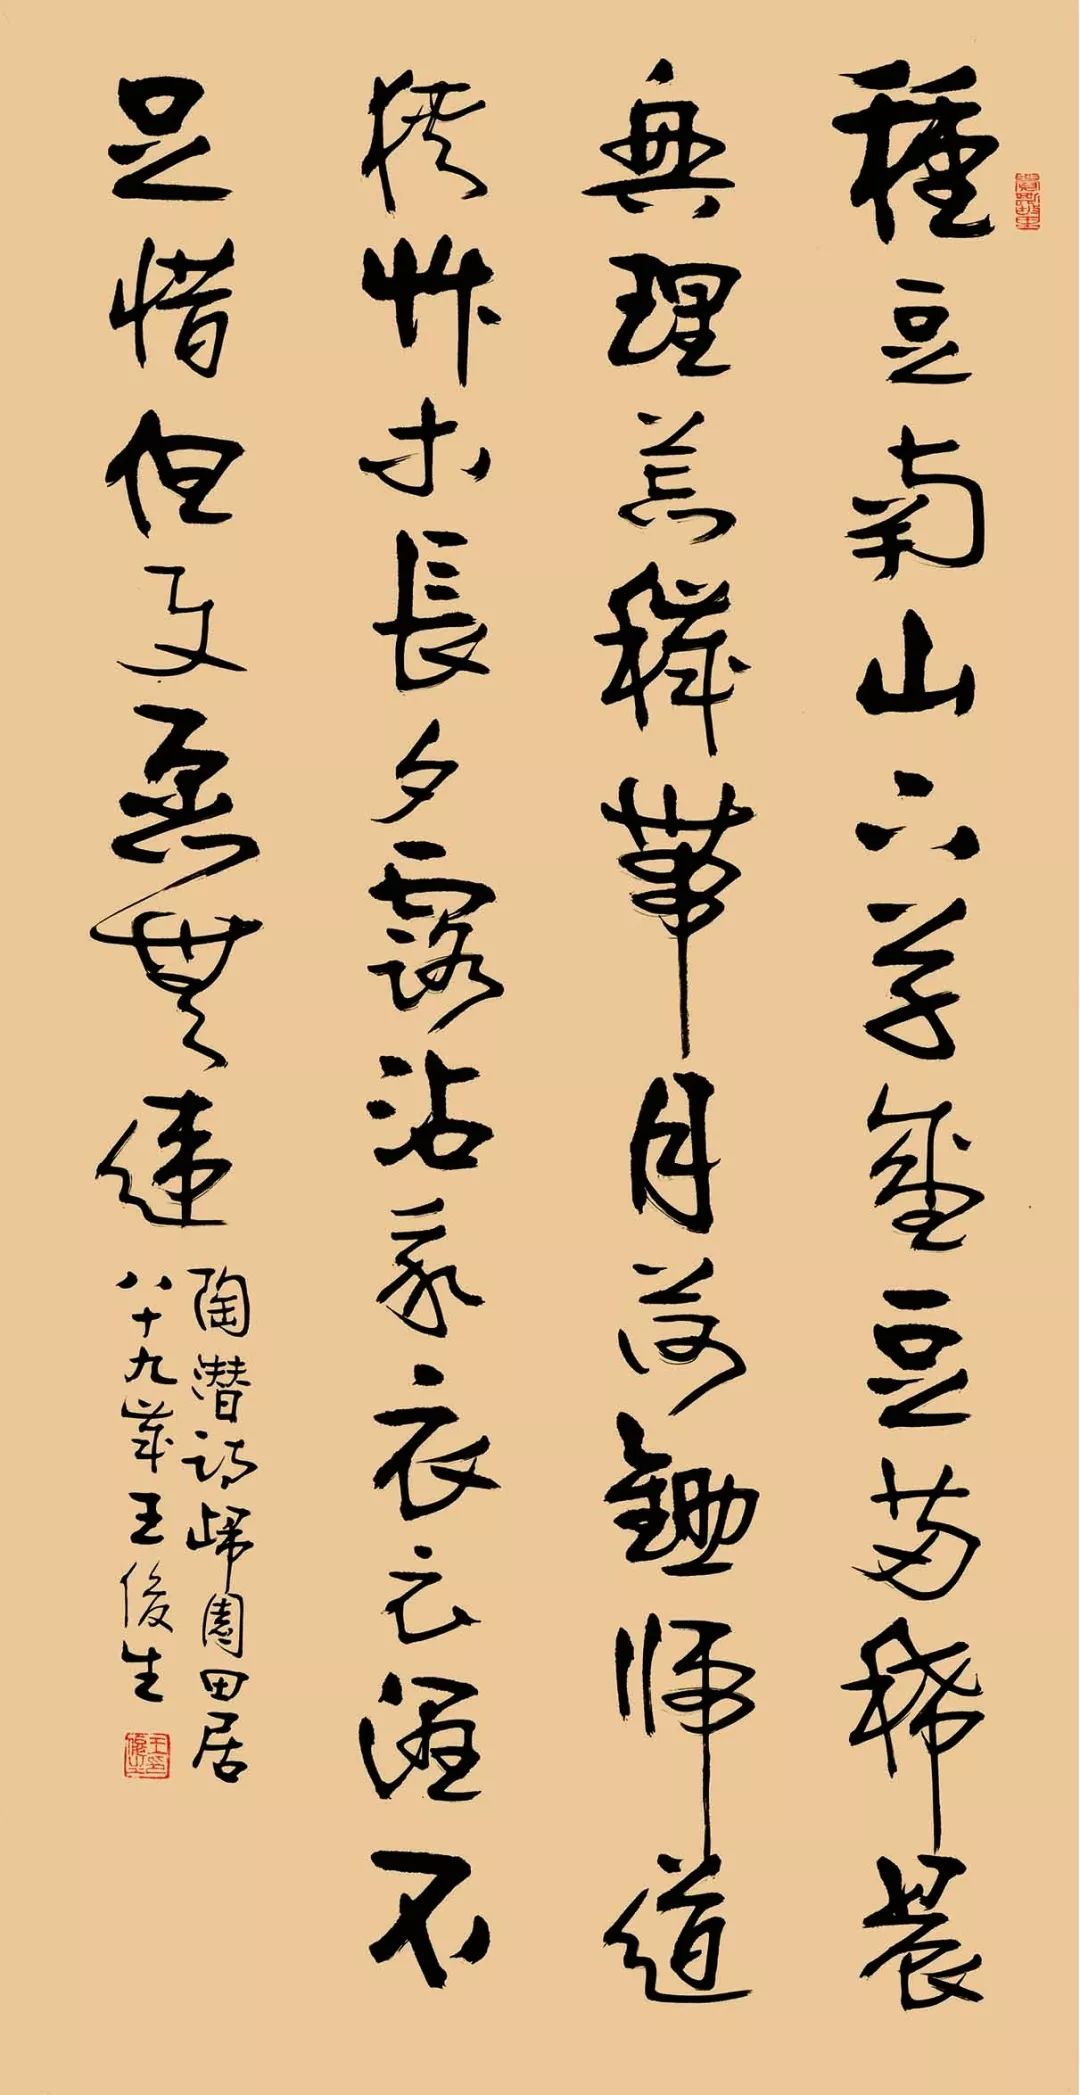 種豆南山下草盛豆苗稀晨
興理荒穢帶月荷鋤帰道
狹艸木長夕露沾我衣衣濕不
足惜但使愿無違
陶潜詩歸園田居
八十九歲王俊生